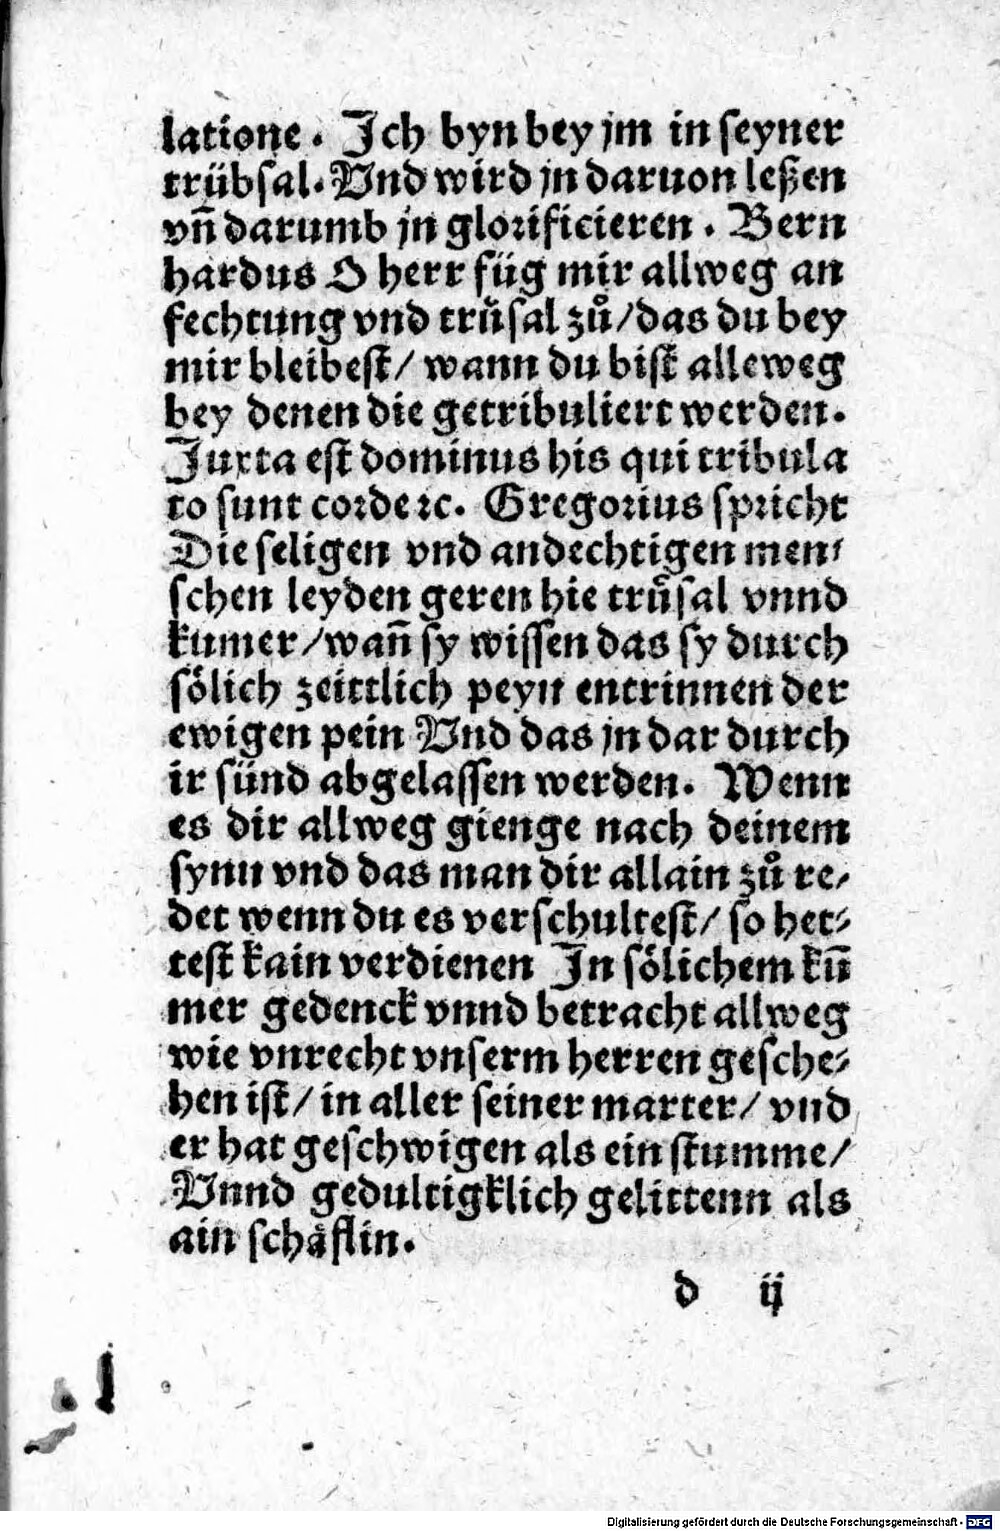 latione. Jch byn bey jm in seyner
trübsal. Vnd wird jn daruon leßen
vñ darumb jn glorificieren. Bern
hardus O herr füg mir allweg an
fechtung vnd truͤsal zuͦ/das du bey
mir bleibest/ wann du bist alleweg
bey denen die getribuliert werden.
Juxta est dominus his qui tribula
to sunt corde ⁊c. Gregorius spricht
Die seligen vnd andechtigen men⸗
schen leyden geren hie truͤsal vnnd
kumer/wañ sy wissen das sy durch
soͤlich zeittlich peyn entrinnen der
ewigen pein Vnd das jn dar durch
ir sünd abgelassen werden. Wenn
es dir allweg gienge nach deinem
synn vnd das man dir allain zuͦ re⸗
det wenn du es verschultest/ so het⸗
test kain verdienen Jn soͤlichem kum̄
mer gedenck vnnd betracht allweg
wie vnrecht vnserm herren gesche⸗
hen ist/ in aller seiner marter/ vnd
er hat geschwigen als ein stumme/
Vnnd gedultigklich gelittenn als
ain schaͤflin.
d ij
Digitalisierung gefördert durch die Deutsche Forschungsgemeinschaft - DFG